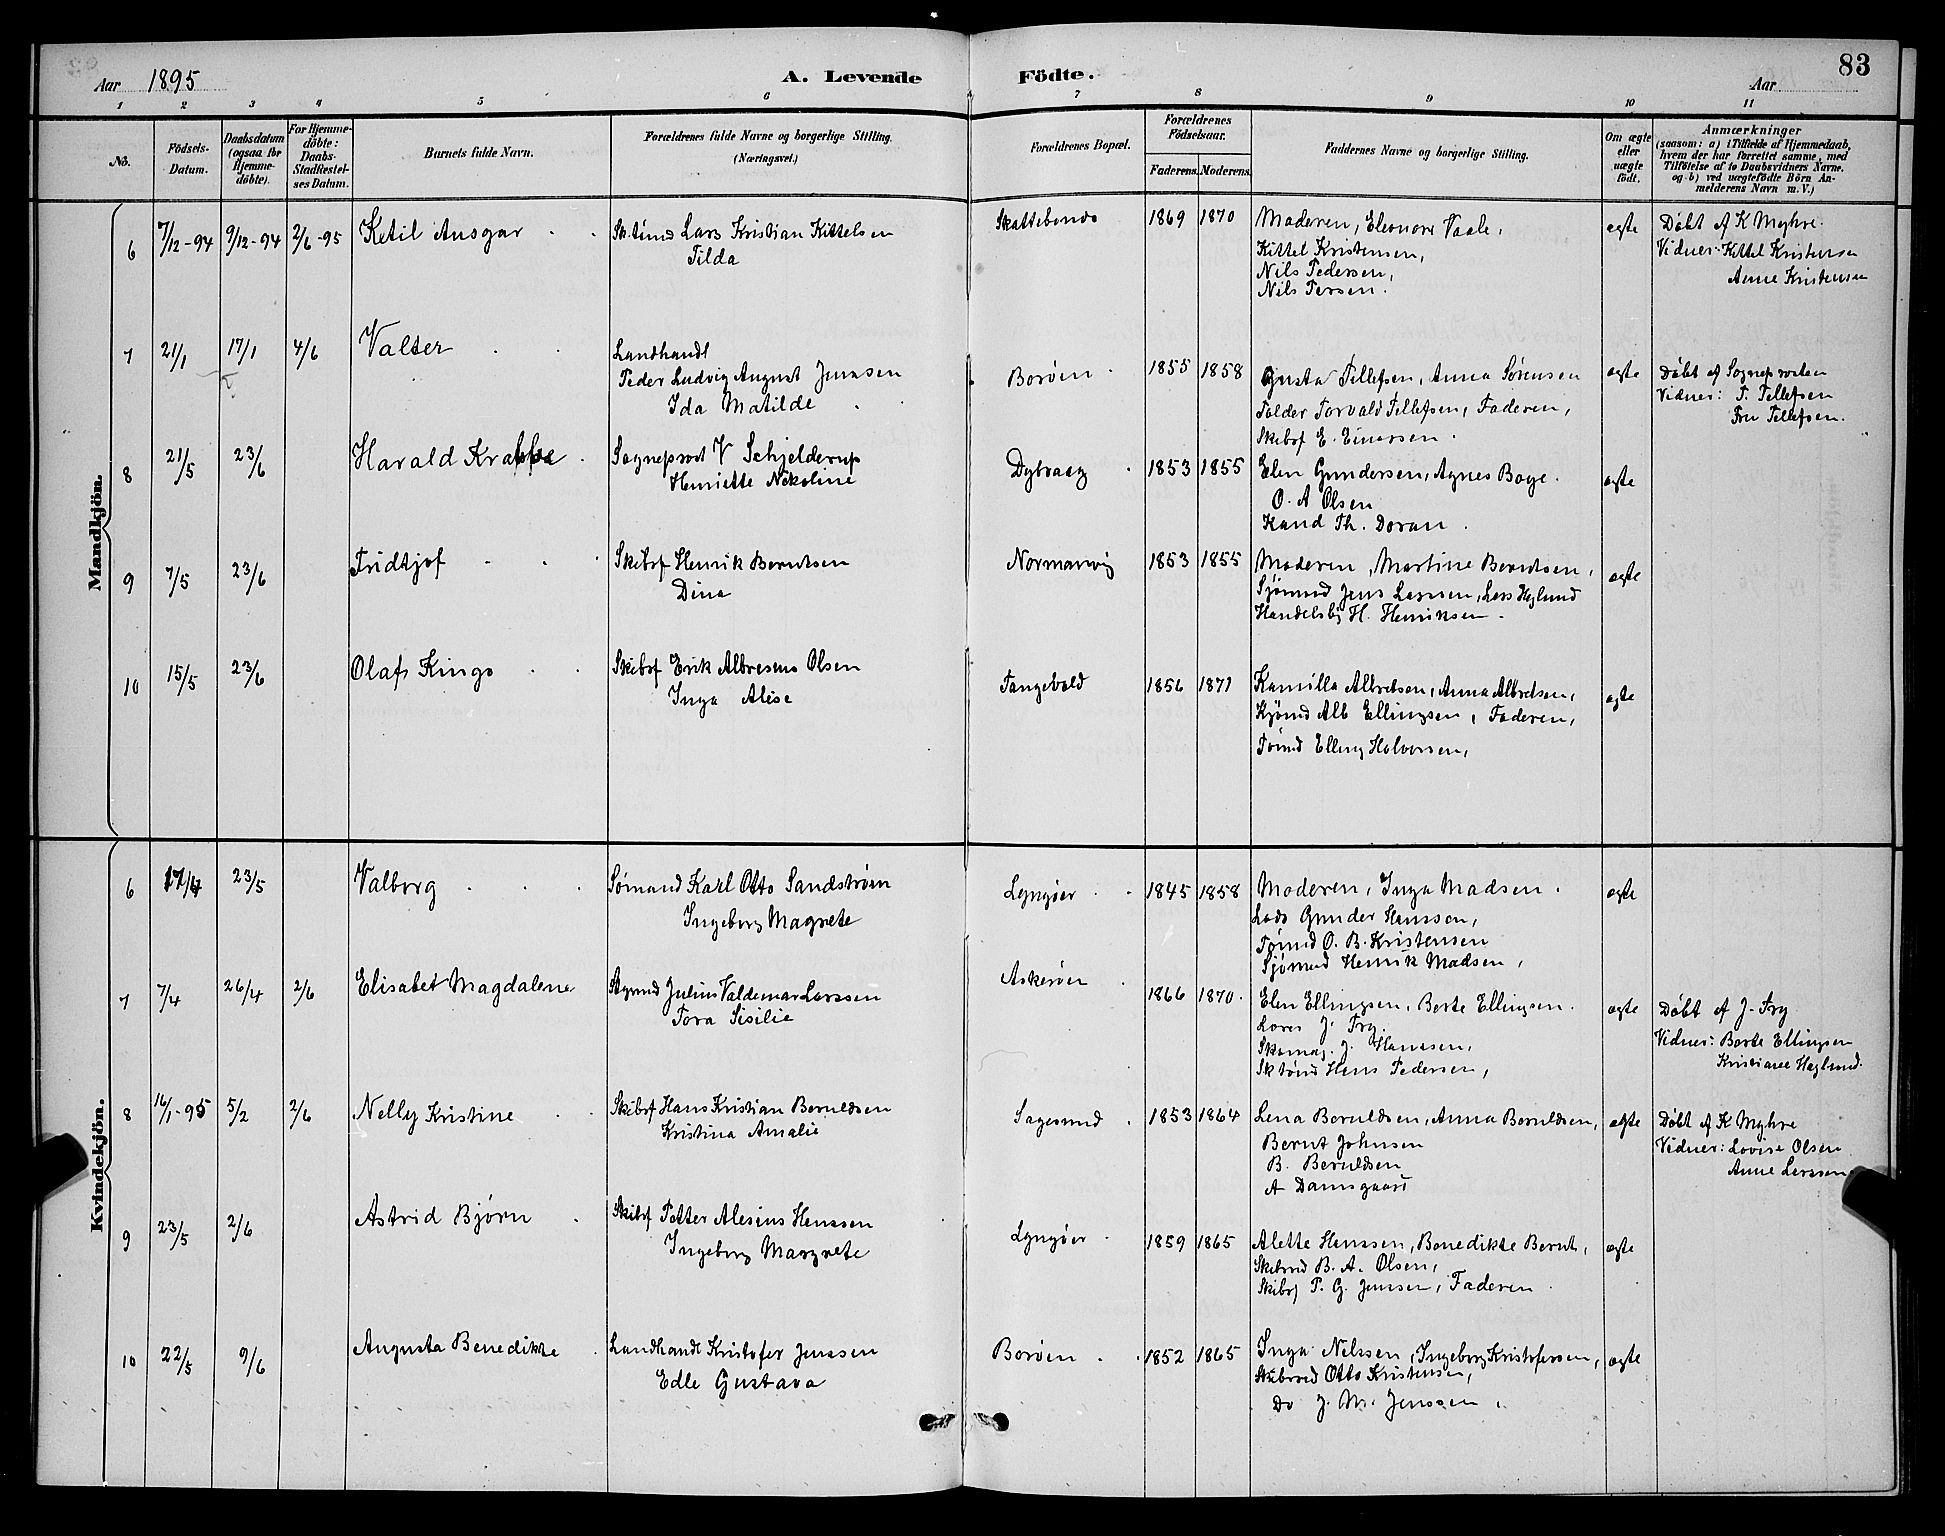 Aar 1895
A. Levende Födte.
Aar
83
1 2 3 4 5 6 7 8 9 10 11
No.
Födsels-Datum.
Daabsdatum (ogsaa for Hjemme-döbte).
For Hjemme-döbte: Daabs-Stadfestel-ses Datum.
Barnets fulde Navn.
Forældrenes fulde Navne og borgerlige Stilling.
(Næringsvei.)
Forældrenes Bopæl.
Forældrenes Födselsaar.
Faderens. Moderens.
Faddernes Navne og borgerlige Stilling.
Om ægte eller uægte födt.
Anmærkninger
(saasom: a) i Tilfælde af Hjemmedaab,
hvem der har forrettet samme, med
Tilföielse af to Daabsvidners Navne.
og b) ved uægtefödte Börn An-
melderens Navn m. V.)
Mandkjön.
6 7/12-94 9/12-94 2/6-95 Ketil Ansgar
Lars Kristian Kittelsen
Tilda
1869 1870
Moderen, Eleonore Vaale,
Kittel Kristensen,
Nils Pedersen,
Nils Persen.
ægte
Døbt af K Myhre.
Vidner: Kittel Kristensen
Anne Kristensen
7 21/1 17/1 4/6 Valter
Landhandl
Peder Ludvig August Jenssen
Ida Matilde
Borøen
1855 1858
Gusta Tellefsen, Anna Sørensen
Torvald Tellefsen, Faderen,
Skibsf E. Einersen.
ægte
Døbt af Sogneprosten
Vidner: T. Tellefsen
Fru Tellefsen.
8 21/5 23/6 Harald Krabbe
V Schjelderup
Henriette Nikoline
Dybvaag
1853 1855
Elen Gundersen, Agnes Boye.
O. A Olsen
Kand Th. Doran.
ægte
9 7/5 23/6 Fridtjof
Skibsf Henrik Berntsen
Dina
Normanvig
1853 1855
Moderen, Martine Berntsen,
Sjømand Jens Larssen, Lars Heglund
H. Henriksen.
ægte
10 15/5 23/6 Olaf Kingo
Skibsf Erik Olsen
Inga Alise
1856 1871
Kamilla Albretsen, Anna Albretsen,
Alb Ellingsen, Faderen,
Elling Halvorsen,
ægte
Kvindekjön.
6 17/4 23/5 Valborg
Sømand Karl Otto Sandstrøm
Ingeborg Magrete
Lyngøer
1845 1858
Moderen, Inga Madsen.
Lods Gunder Hanssen,
O. B. Kristensen
Sjømand Henrik Madsen,
ægte
7 7/4 26/4 2/6 Elisabet Magdalene
Julius Valdemar Larssen
Tora Sisilie
Askerøen
1866 1870
Elen Ellingsen, Berte Ellingsen.
J. Fry.
J. Hanssen,
Hans Pedersen,
ægte
Døbt af J. Fry
Vidner: Berte Ellingsen
Kristiane Heglund.
8 16/1-95 5/2 2/6 Nelly Kristine
Skibsf Hans Kristian Beruldsen
Kristina Amalie
Sagesund
1853 1864
Lena Beruldsen, Anna Beruldsen,
Bernt Johnsen
B. Beruldsen
A Damsgaard
ægte
Døbt af K Myhre
Vidner: Lovise Olsen
Anne Larssen
9 23/5 2/6 Astrid Bjørn
Skibsf Petter Alesius Henssen
Ingeborg Margrete
Lyngøer
1859 1865
Alette Henssen, Benedikte Bernt,
B. A. Olsen,
Skibsf P. G. Jenssen, Faderen
ægte
10 22/5 9/6 Augusta Benedikte
Landhandl Kristofer Jenssen
Edle Gustava
Borøen
1852 1865
Inga Nilssen, Ingeborg Kristofersen,
Otto Kristensen,
Do J. M. Jenssen,
ægte